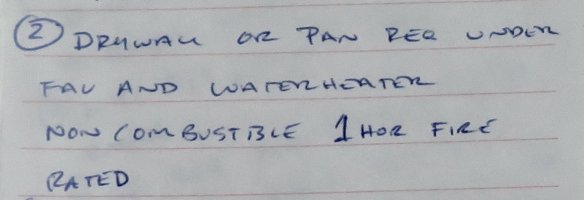 ② DRYWALL OR PAN REQ UNDER
FAU AND WATERHEATER
NON COMBUSTIBLE 1 HOR FIRE
RATED